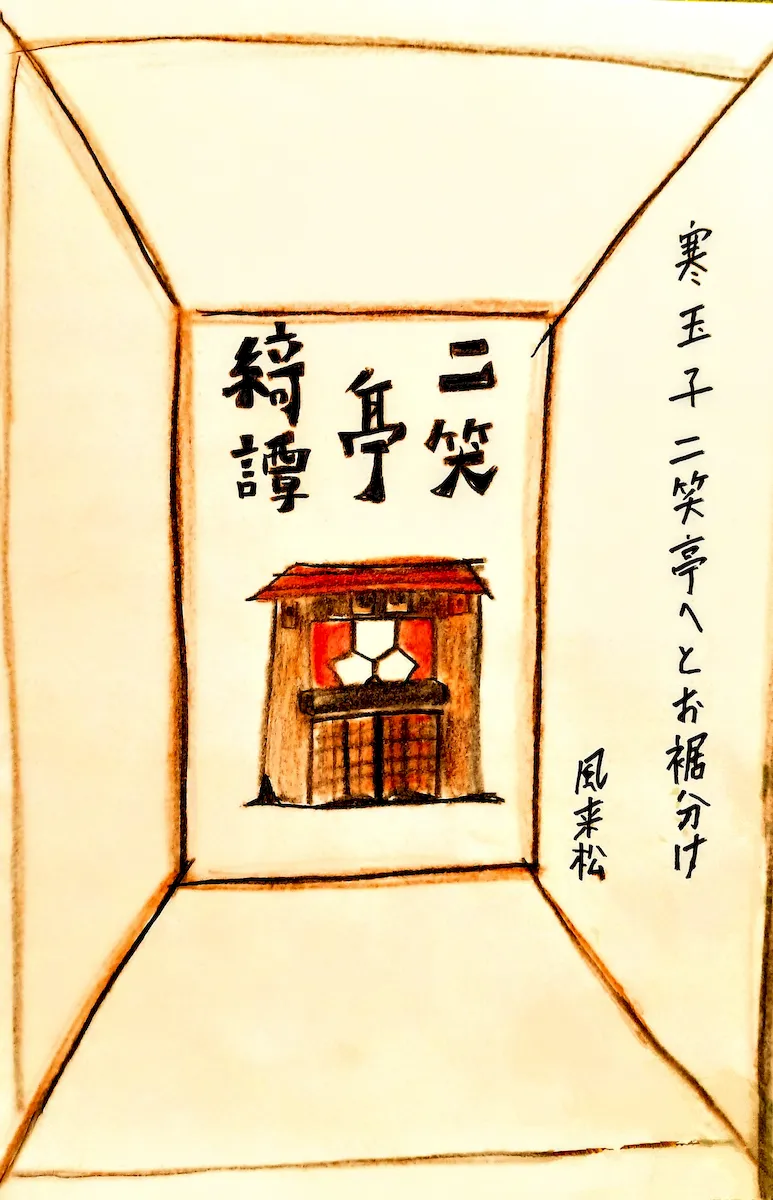 寒玉子二笑亭へとお裾分け
風来松
二笑
亭
綺譚